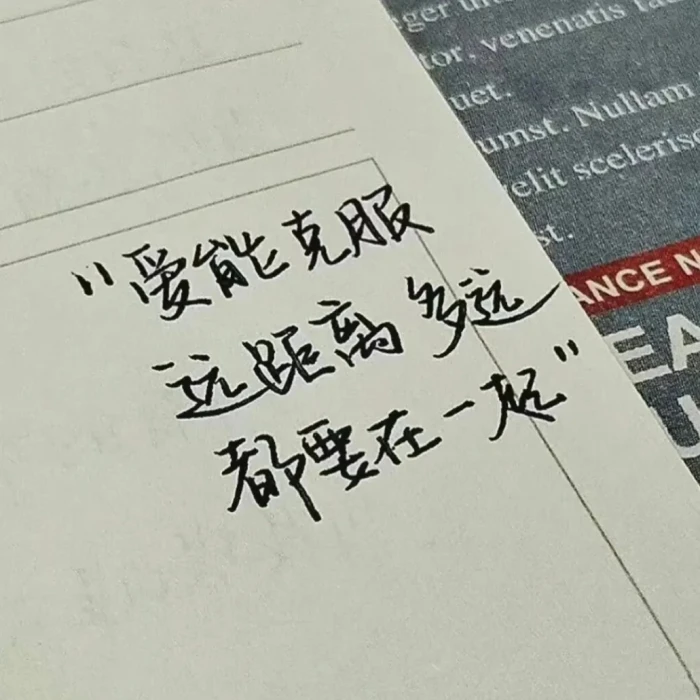 "爱能克服
远距离多远
都要在一起"
ger
tor, venenatis
uet.
umst. Nullam
velit sceleris
st.
ANCE N
EA